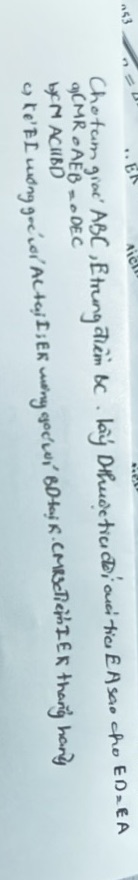 Cho tam giác ABC, E trung điểm bc. lấy D thuộc tia đối của tia EA sao cho ED=EA
a) CMR △AEB = △DEC
b) CM AC//BD
c) kẻ EI vuông góc với AC tại I; EK vuông góc với BD tại K. CMR 3 điểm I E K thẳng hàng